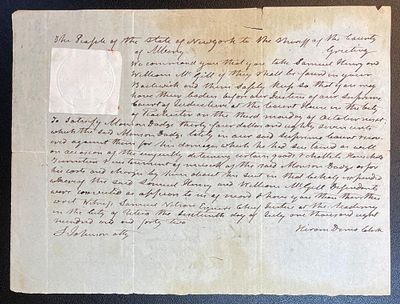 The People of the State of New York to the Sheriff of the County
of Albany Greeting
We command you that you take Samuel Henry and
William McGill if they shall be found in your
Bailiwick and them safely keep so that you may
have their bodies before our Justices of our Supreme
Court of Judicature at the Court House in the City
of Rochester on the third monday of October next
To Satisfy Monson Dady thirty four dollars and eighty seven cents
which the said Monson Dady lately in our said Supreme Court recov
ered against them for his damages which he had sustained as well
on occasion of the unjustly detaining certain goods & chattels
as for
his costs and charges by him about his suit in that behalf expended
whereof the said Samuel Henry and William McGill Defendants
were convicted as appears to us of record & have you then there this
writ Witness Samuel Nelson Esquire Chief Justice at the Academy
in the City of Utica the Sixteenth day of July one thousand eight
hundred and forty two
S Johnson atty Hiram Denio Clerk